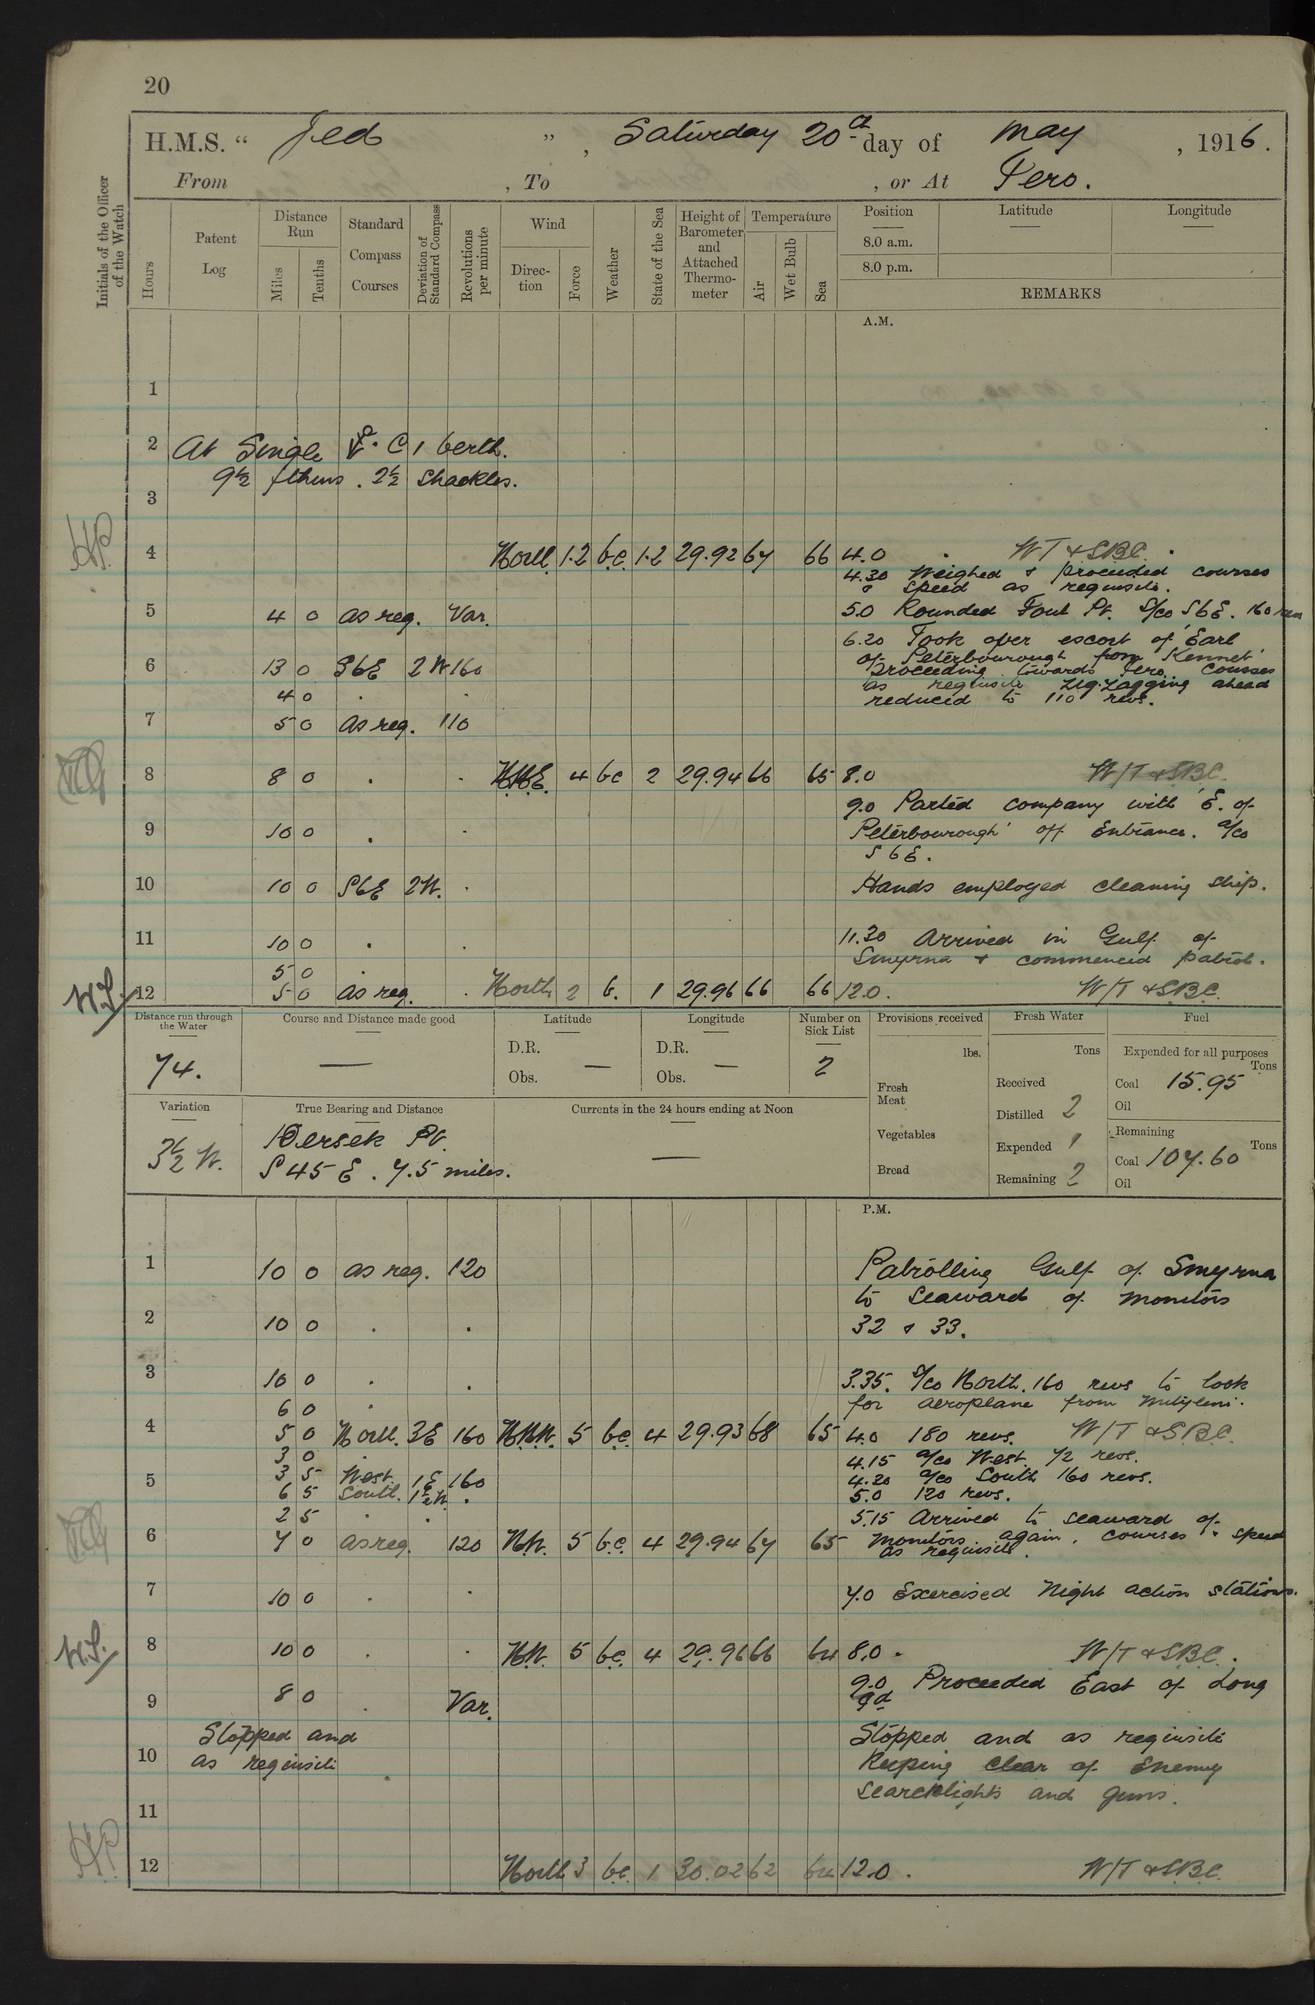 20
H.M.S. “ Jed ” , Saturday 20th day of May , 1916.
From , To , or At Pero.
Initials of the Officer of the Watch
Hours
Patent Log
Distance Run
Miles
Tenths
Standard Compass Courses
Deviation of Standard Compass
Revolutions per minute
Wind
Direction
Force
Weather
State of the Sea
Height of Barometer and Attached Thermometer
Temperature
Air
Wet Bulb
Sea
Position Latitude Longitude
8.0 a.m.
8.0 p.m.
REMARKS
A.M.
1
2 At Single C1 berth.
9½ fthms. 2½ Shackles.
3
4 North 1.2 b.c. 1.2 29.92 67 66 4.0 . WT & S.B.C. .
4.30 Weighed & proceeded courses
& speed as requisite.
5 4 0 as req. Var. 5.0 Rounded Foul Pt. a/co SbE. 160 revs
6.20 Took over escort of 'Earl
6 13 0 SbE 2W 160 of Peterbourough' from 'Kennet'
proceeding towards Pero courses
4 0 . . as requisite Zig-Zagging ahead
reduced to 110 revs.
7 5 0 as req. 110
8 8 0 . . N.N.E. 4 bc 2 29.94 66 65 8.0 W/T & S.B.C.
9.0 Parted company with 'E. of
9 10 0 . . Peterbourough' off Entrance. a/co
SbE.
10 10 0 SbE 2W. . Hands employed cleaning ship.
11 10 0 . . 11.30 Arrived in Gulf of
5 0 . Smyrna & commenced patrol.
W.S. 12 5 0 as req. . North 2 b. 1 29.96 66 66 12.0. W/T & S.B.C.
Distance run through the Water
74.
Course and Distance made good
—
Latitude
D.R.
Obs. —
Longitude
D.R.
Obs. —
Number on Sick List
2
Provisions received
lbs.
Fresh Meat
Vegetables
Bread
Fresh Water
Tons
Received
Distilled 2
Expended 1
Remaining 2
Fuel
Expended for all purposes
Tons
Coal 15.95
Oil
Remaining
Tons
Coal 107.60
Oil
Variation
3½ W.
True Bearing and Distance
Dersek Pt.
S 45 E. 7.5 miles.
Currents in the 24 hours ending at Noon
—
P.M.
1 10 0 as req. 120 Patrolling Gulf of Smyrna
to seaward of monitors
2 10 0 . . 32 & 33.
3 10 0 . . 3.35. a/co North. 160 revs to look
6 0 . for aeroplane from Mityleni.
4 5 0 North. 3E 160 N.N.W. 5 b.c. 4 29.93 68 65 4.0 180 revs. W/T & S.B.C.
3 0 . 4.15 a/co West ½ revs.
5 3 5 West. 1E 160 4.20 a/co South 160 revs.
6 5 South. 1½W. . 5.0 120 revs.
2 5 . . 5.15 Arrived to seaward of
6 7 0 as req. 120 N.W. 5 b.c. 4 29.94 67 65 monitors again, courses & speed
as requisite.
7 10 0 . . 7.0 Exercised Night action stations.
W.S. 8 10 0 . . N.W. 5 b.c. 4 29.96 66 64 8.0 . W/T & S.B.C.
9.0 Proceeded East of Long
9 8 0 . Var. Id
Stopped and Stopped and as requisite
10 as requisite Keeping clear of Enemy
searchlights and guns.
11
12 North 3 b.c. 1 30.02 62 64 12.0 . W/T & S.B.C.